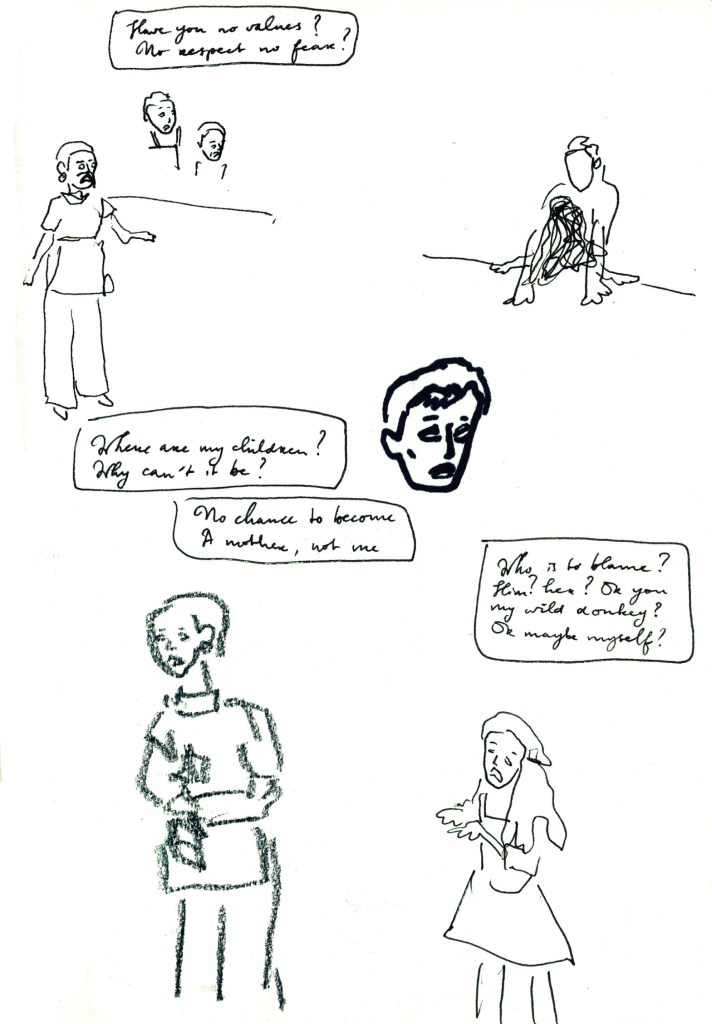 Have you no values?
No respect no fear?
Where are my children?
Why can't it be?
No chance to become
A mother, not me
Who is to blame?
Him? her? Or you
my wild donkey?
Or maybe myself?